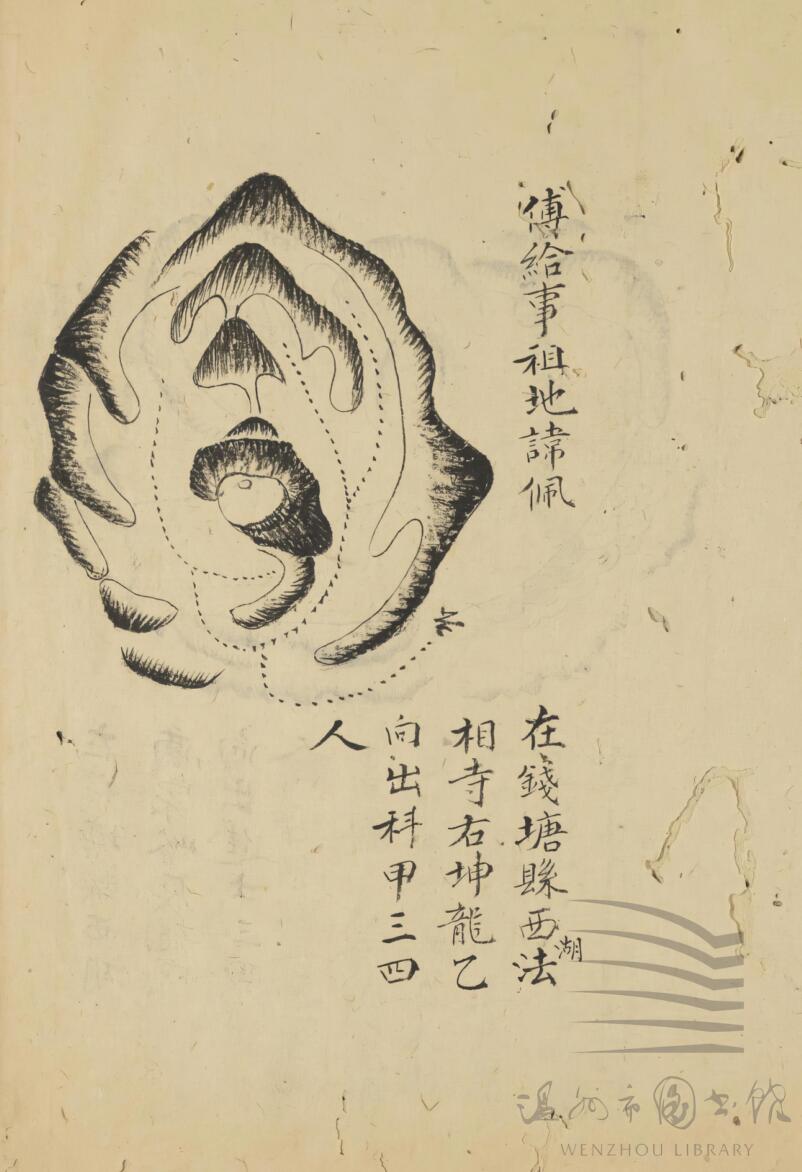 傅給事祖地諱佩
在錢塘縣西湖法
相寺右坤龍乙
向出科甲三四
人
水
温州市图书馆
WENZHOU LIBRARY